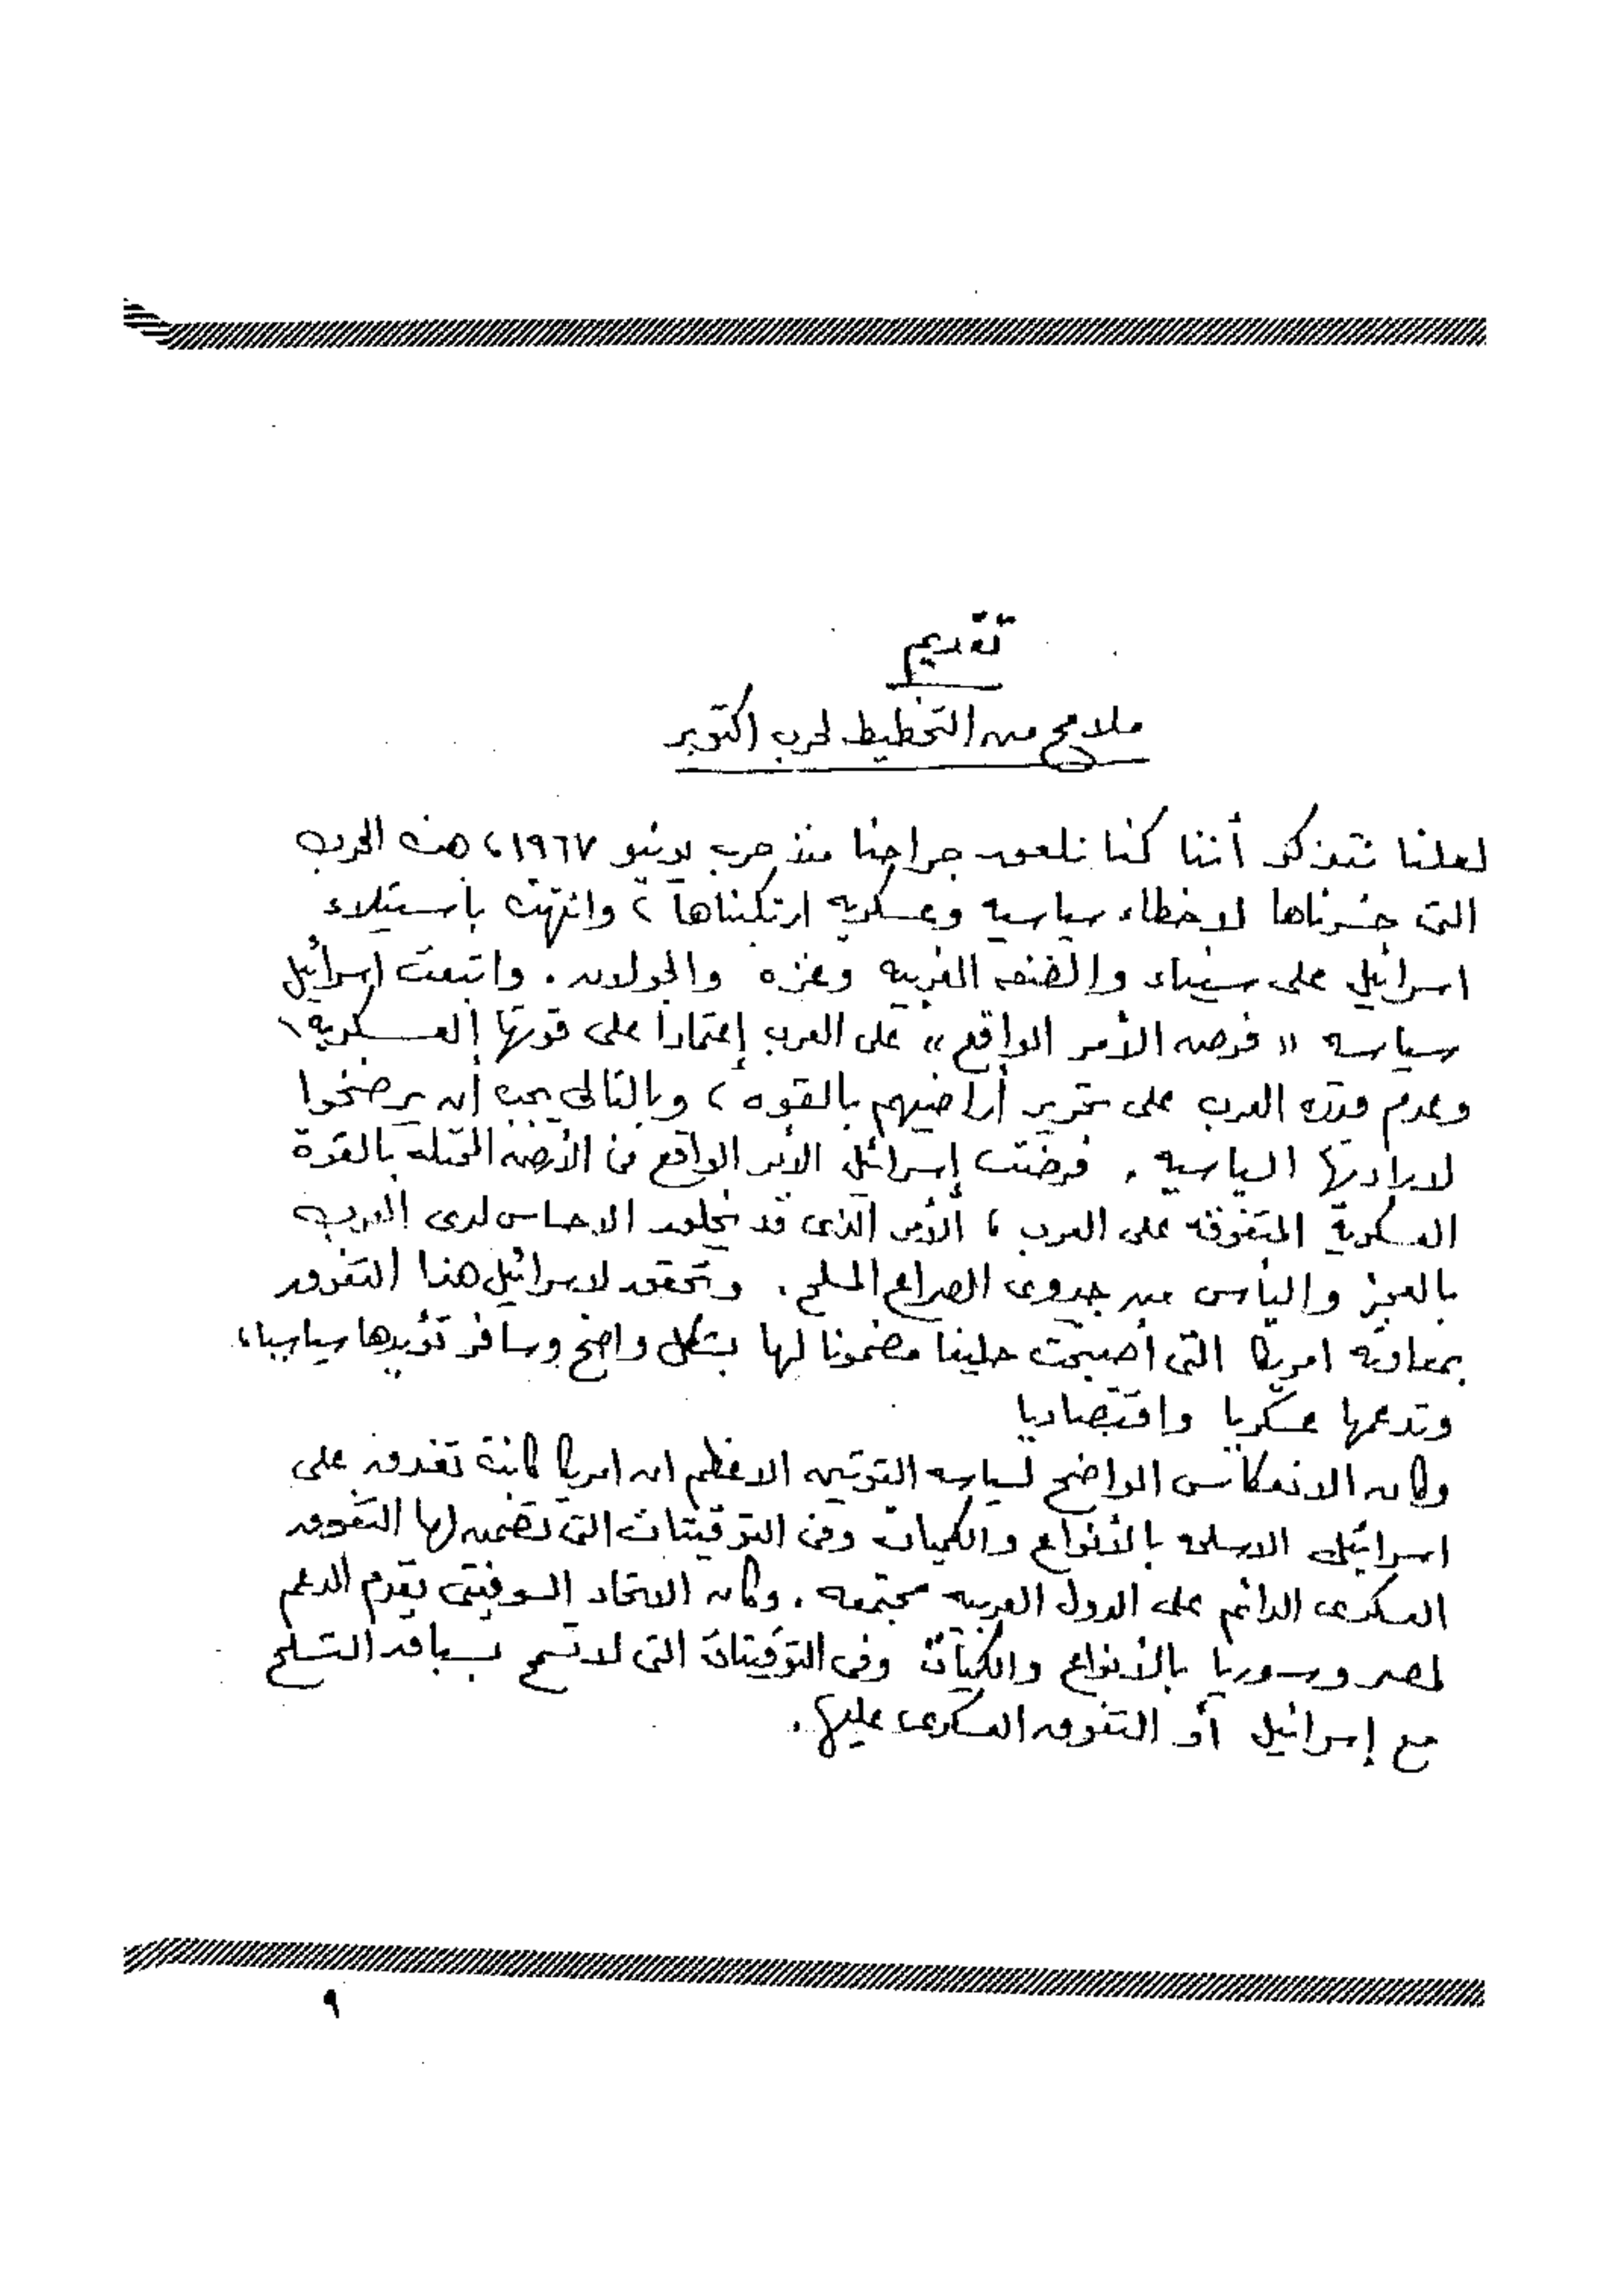 تقديم
ملامح من التخطيط لحرب اكتوبر
لعلنا نتذكر أننا كنا نلعق جراحنا منذ حرب يونيو ١٩٦٧، هذه الحرب
التى خسرناها لاخطاء سياسيه وعسكريه ارتكبناها، وانتهت بأستيلاء
اسرائيل على سيناء والضفه الغربيه وغزه والجولان. واتبعت اسرائيل
سياسه «فرض الأمر الواقع» على العرب إعتمادا على قوتها العسكريه،
وعدم قدره العرب على تحرير أراضيهم بالقوه، وبالتالى يجب أن يرضخوا
لارادتها السياسيه. فرضت إسرائيل الأمر الواقع فى الأرض المحتله بالقوة
العسكرية المتفوقه على العرب، الأمر الذى قد يخلق الاحساس لدى العرب
بالعجز واليأس من جدوى الصراع المسلح. وتحقق لاسرائيل هذا التفوق
بمعاونه امريكا التى أصبحت حليفا مضمونا لها بشكل واضح وسافر تؤيدها سياسيا،
وتدعمها عسكريا واقتصاديا
وكان الانعكاس الواضح لسياسه القوتين الاعظم ان امريكا كانت تغدق على
اسرائيل الاسلحه بالأنواع والكميات وفى التوقيتات التى تضمن لها التفوق
العسكرى الدائم على الدول العربيه مجتمعه. وكان الاتحاد السوفيتى يقدم الدعم
لمصر وسوريا بالأنواع والكميات وفى التوقيتات التى لا تسمح بسباق التسلح
مع إسرائيل أو التفوق العسكرى عليها.
٩